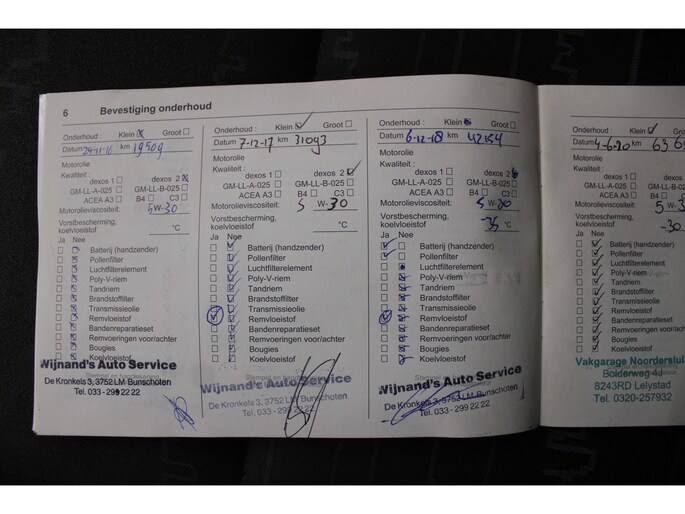 6 Bevestiging onderhoud
Onderhoud : Klein Groot
Datum 24-11-16 km 19509
Motorolie
Kwaliteit :
dexos 1 dexos 2
GM-LL-A-025 GM-LL-B-025
ACEA A3 B4 C3
Motorolieviscositeit: 5 W-30
Vorstbescherming,
koelvloeistof °C
Ja Nee
Batterij (handzender)
Pollenfilter
Luchtfilterelement
Poly-V-riem
Tandriem
Brandstoffilter
Transmissieolie
Remvloeistof
Bandenreparatieset
Remvoeringen voor/achter
Bougies
Koelvloeistof
Wijnand's Auto Service
De Kronkels 3, 3752 LM Bunschoten
Tel. 033 - 299 22 22
Onderhoud : Klein Groot
Datum 7-12-17 km 31093
Motorolie
Kwaliteit :
dexos 1 dexos 2
GM-LL-A-025 GM-LL-B-025
ACEA A3 B4 C3
Motorolieviscositeit: 5 W-30
Vorstbescherming,
koelvloeistof °C
Ja Nee
Batterij (handzender)
Pollenfilter
Luchtfilterelement
Poly-V-riem
Tandriem
Brandstoffilter
Transmissieolie
Remvloeistof
Bandenreparatieset
Remvoeringen voor/achter
Bougies
Koelvloeistof
Wijnand's Auto Service
De Kronkels 3, 3752 LM Bunschoten
Tel. 033 - 299 22 22
Onderhoud : Klein Groot
Datum 6-12-18 km 42154
Motorolie
Kwaliteit :
dexos 1 dexos 2
GM-LL-A-025 GM-LL-B-025
ACEA A3 B4 C3
Motorolieviscositeit: 5 W-30
Vorstbescherming,
koelvloeistof -35 °C
Ja Nee
Batterij (handzender)
Pollenfilter
Luchtfilterelement
Poly-V-riem
Tandriem
Brandstoffilter
Transmissieolie
Remvloeistof
Bandenreparatieset
Remvoeringen voor/achter
Bougies
Koelvloeistof
Wijnand's Auto Service
De Kronkels 3, 3752 LM Bunschoten
Tel. 033 - 299 22 22
Onderhoud : Klein Groot
Datum 4-6-20 km
Motorolie
Kwaliteit :
dexos 1 dexos
GM-LL-A-025 GM-LL-B-025
ACEA A3 B4 C3
Motorolieviscositeit: 5 W-
Vorstbescherming,
koelvloeistof -30
Ja Nee
Batterij (handzender)
Pollenfilter
Luchtfilterelement
Poly-V-riem
Tandriem
Brandstoffilter
Transmissieolie
Remvloeistof
Bandenreparatieset
Remvoeringen voor/achter
Bougies
Koelvloeistof
Vakgarage Noorderslui
Bolderweg 4J
8243RD Lelystad
Tel. 0320-257932